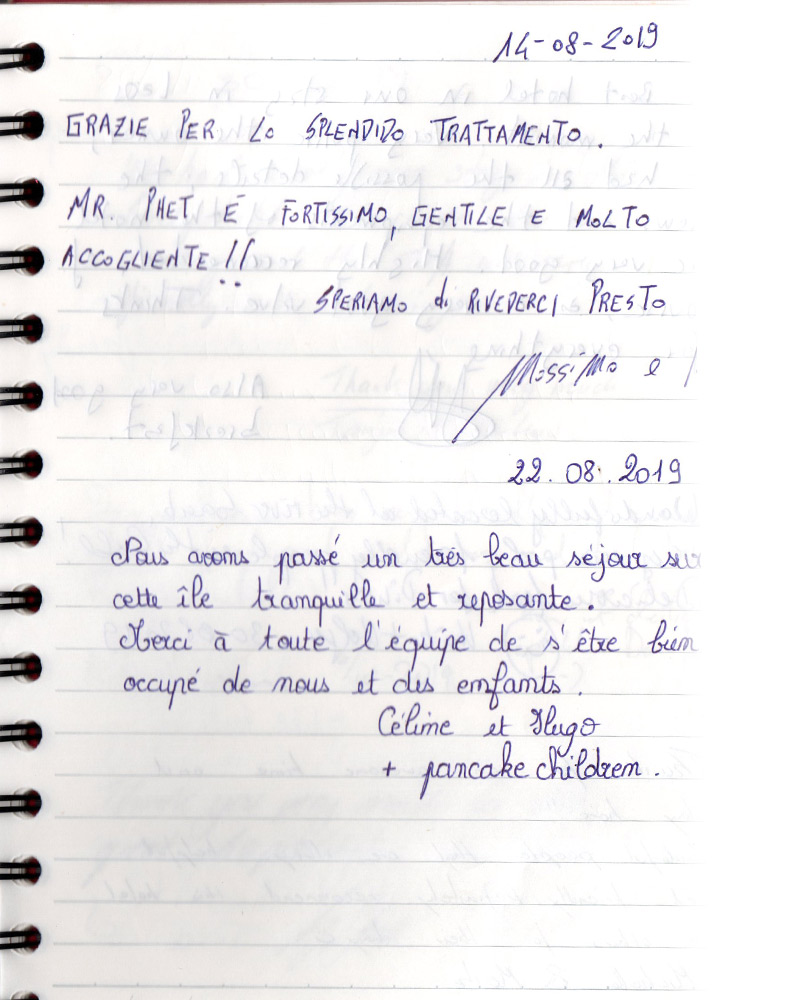 14-08-2019
GRAZIE PER LO SPLENDIDO TRATTAMENTO.
MR. PHET É FORTISSIMO, GENTILE E MOLTO
ACCOGLIENTE!!
SPERIAMO di RIVEDERCI PRESTO
Massimo e
22.08.2019
Nous avons passé un très beau séjour sur
cette île tranquille et reposante.
Merci à toute l'équipe de s'être bien
occupé de nous et des enfants.
Céline et Hugo
+ pancake children.